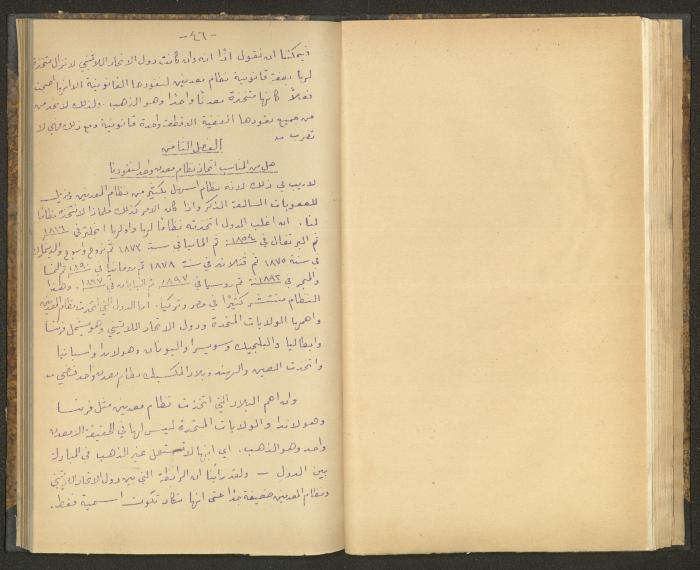 -٤٦-
فيمكننا ان نقول اذًا انه وان كانت دول الاتحاد اللاتيني لا تزال متخذة
لها بصفة قانونية نظام معدنين لنقودها القانونية الا انها اصبحت
فعلاً كانها متخذة معدنًا واحدًا وهو الذهب. ولذلك لا يعد من
من جميع نقودها الفضية الا قطعة واحدة قانونية ومع ذلك فهي لا
تضرب
الفصل الثامن
هل من المناسب اتخاذ نظام معدن واحد لنقودنا
لا ريب في ذلك لانه نظام اسهل بكثير من نظام المعدنين ومزيل
للصعوبات السالفة الذكر واذا كان الامر كذلك فلماذا لا نتخذه نظامًا
لنا. ان اغلب الدول اتخذته نظامًا لها واولها انجلترا في ١٨١٦
ثم البرتغال في ١٨٥٤ ثم المانيا في سنة ١٨٧٣ ثم نروج واسوج والدنمارك
في سنة ١٨٧٥ ثم فنلاند في سنة ١٨٧٨ ثم رومانيا في ١٨٩٠ ثم النمسا
والمجر في ١٨٩٢ ثم روسيا في ١٨٩٧ ثم اليابان في ١٨٩٧. وهذا
النظام منتشر كثيرًا في مصر وتركيا. اما الدول التي اتخذت نظام المعدنين
واهمها الولايات المتحدة ودول الاتحاد اللاتيني وهو يشمل فرنسا
وايطاليا والبلجيك وسويسرا واليونان وهولاندا واسبانيا
واتخذت الصين والهند وبلاد المكسيك نظام معدن واحد فضي
وان اهم البلاد التي اتخذت نظام معدنين مثل فرنسا
وهولاندا والولايات المتحدة ليس لها في الحقيقة الا معدن
واحد وهو الذهب. اي انها لا تستعمل غير الذهب في المبادلة
بين الدول — ولقد رأينا ان الرابطة التي بين دول الاتحاد اللاتيني
ونظام المعدنين ضعيفة جدًا حتى انها تكاد تكون اسمية فقط.